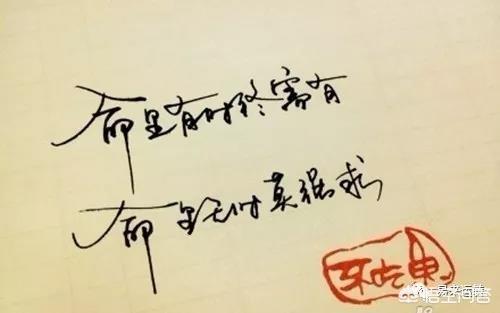 命里有时终需有
命里无时莫强求
不吃鱼
悟空问答